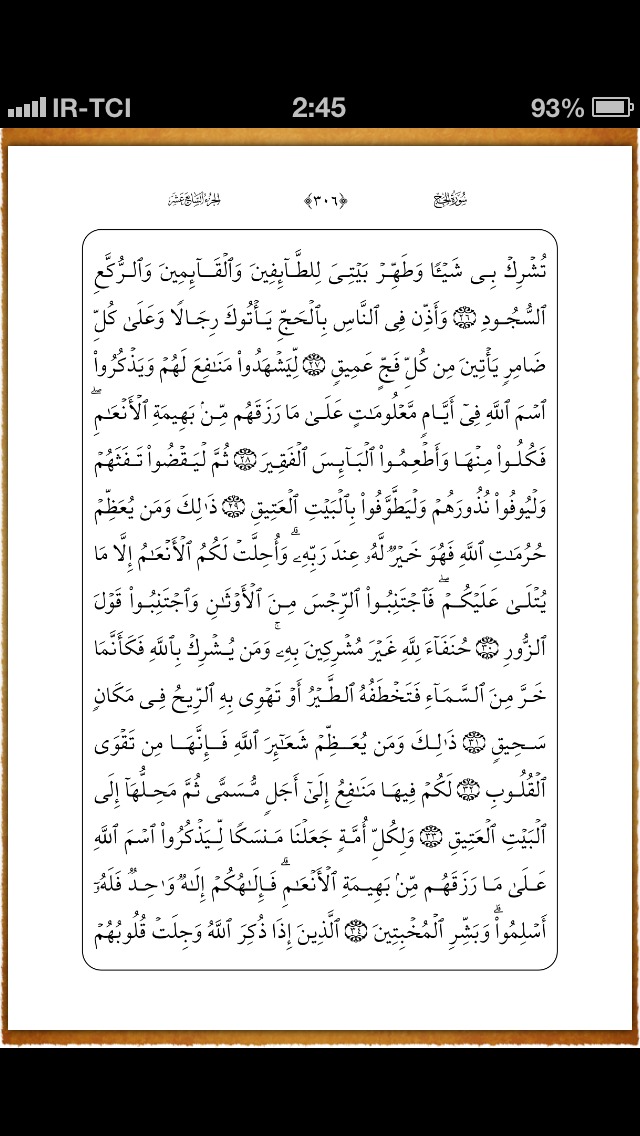 IR-TCI 2:45 93%
سُورَةُ الحَجِّ ﴿٣٠٦﴾ الجُزْءُ السَّابِعَ عَشَرَ
تُشْرِكْ بِى شَيْـًٔا وَطَهِّرْ بَيْتِىَ لِلطَّآئِفِينَ وَٱلْقَآئِمِينَ وَٱلرُّكَّعِ
ٱلسُّجُودِ ﴿٢٦﴾ وَأَذِّن فِى ٱلنَّاسِ بِٱلْحَجِّ يَأْتُوكَ رِجَالًا وَعَلَىٰ كُلِّ
ضَامِرٍ يَأْتِينَ مِن كُلِّ فَجٍّ عَمِيقٍ ﴿٢٧﴾ لِّيَشْهَدُوا۟ مَنَٰفِعَ لَهُمْ وَيَذْكُرُوا۟
ٱسْمَ ٱللَّهِ فِىٓ أَيَّامٍ مَّعْلُومَٰتٍ عَلَىٰ مَا رَزَقَهُم مِّنۢ بَهِيمَةِ ٱلْأَنْعَٰمِ ۖ
فَكُلُوا۟ مِنْهَا وَأَطْعِمُوا۟ ٱلْبَآئِسَ ٱلْفَقِيرَ ﴿٢٨﴾ ثُمَّ لْيَقْضُوا۟ تَفَثَهُمْ
وَلْيُوفُوا۟ نُذُورَهُمْ وَلْيَطَّوَّفُوا۟ بِٱلْبَيْتِ ٱلْعَتِيقِ ﴿٢٩﴾ ذَٰلِكَ وَمَن يُعَظِّمْ
حُرُمَٰتِ ٱللَّهِ فَهُوَ خَيْرٌ لَّهُۥ عِندَ رَبِّهِۦ ۗ وَأُحِلَّتْ لَكُمُ ٱلْأَنْعَٰمُ إِلَّا مَا
يُتْلَىٰ عَلَيْكُمْ ۖ فَٱجْتَنِبُوا۟ ٱلرِّجْسَ مِنَ ٱلْأَوْثَٰنِ وَٱجْتَنِبُوا۟ قَوْلَ
ٱلزُّورِ ﴿٣٠﴾ حُنَفَآءَ لِلَّهِ غَيْرَ مُشْرِكِينَ بِهِۦ ۚ وَمَن يُشْرِكْ بِٱللَّهِ فَكَأَنَّمَا
خَرَّ مِنَ ٱلسَّمَآءِ فَتَخْطَفُهُ ٱلطَّيْرُ أَوْ تَهْوِى بِهِ ٱلرِّيحُ فِى مَكَانٍ
سَحِيقٍ ﴿٣١﴾ ذَٰلِكَ وَمَن يُعَظِّمْ شَعَٰٓئِرَ ٱللَّهِ فَإِنَّهَا مِن تَقْوَى
ٱلْقُلُوبِ ﴿٣٢﴾ لَكُمْ فِيهَا مَنَٰفِعُ إِلَىٰٓ أَجَلٍ مُّسَمًّى ثُمَّ مَحِلُّهَآ إِلَى
ٱلْبَيْتِ ٱلْعَتِيقِ ﴿٣٣﴾ وَلِكُلِّ أُمَّةٍ جَعَلْنَا مَنسَكًا لِّيَذْكُرُوا۟ ٱسْمَ ٱللَّهِ
عَلَىٰ مَا رَزَقَهُم مِّنۢ بَهِيمَةِ ٱلْأَنْعَٰمِ ۗ فَإِلَٰهُكُمْ إِلَٰهٌ وَٰحِدٌ فَلَهُۥٓ
أَسْلِمُوا۟ ۗ وَبَشِّرِ ٱلْمُخْبِتِينَ ﴿٣٤﴾ ٱلَّذِينَ إِذَا ذُكِرَ ٱللَّهُ وَجِلَتْ قُلُوبُهُمْ